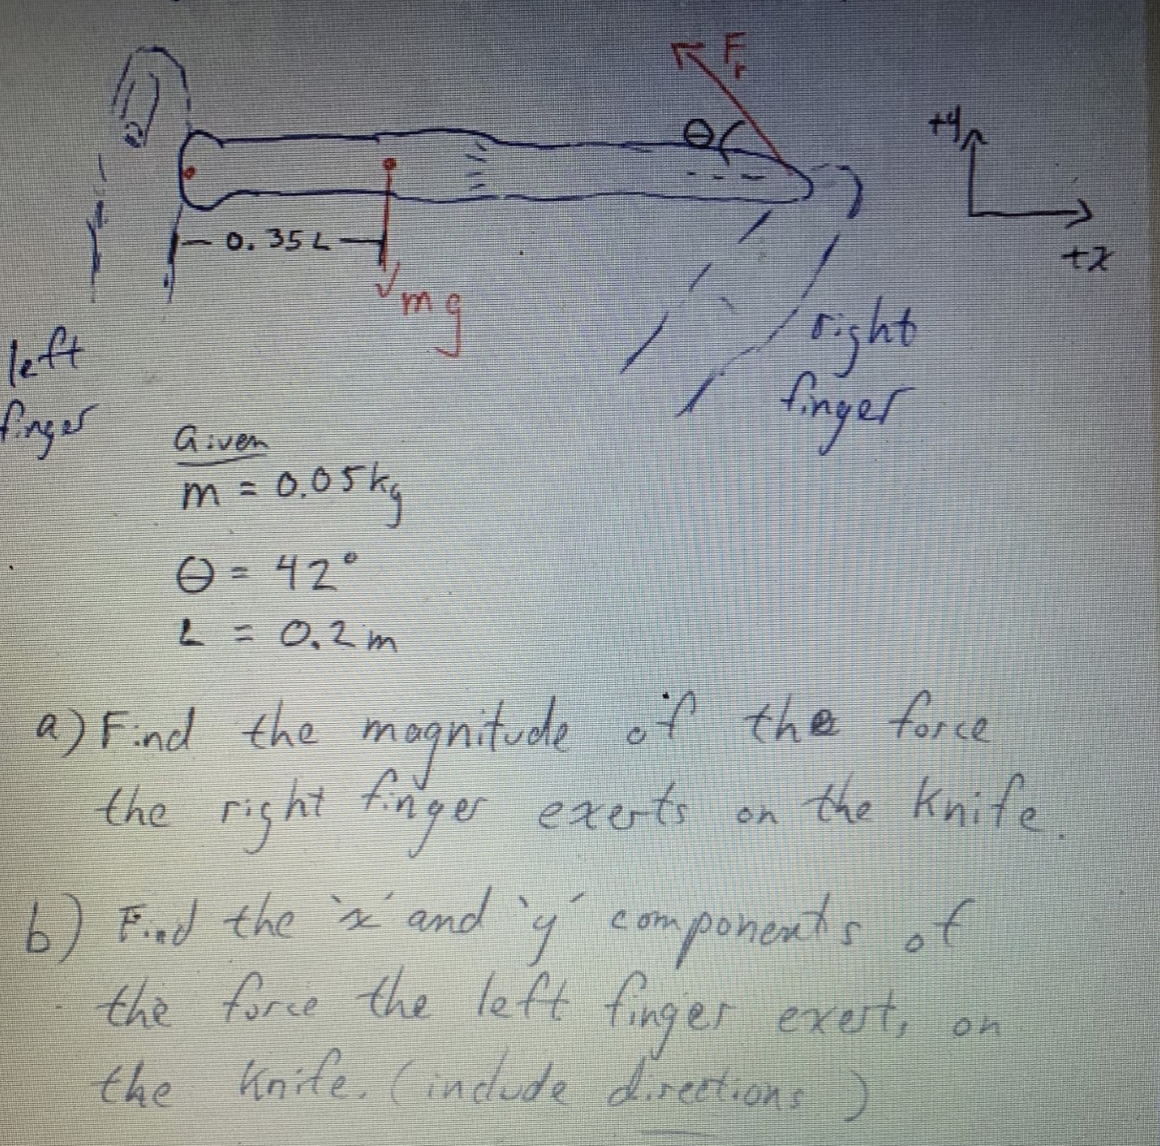 Fr
θ
+y
0.35L
+x
mg
left
finger
right
finger
Given
m = 0.05kg
θ = 42°
L = 0.2m
a) Find the magnitude of the force
the right finger exerts on the knife.
b) Find the 'x' and 'y' components of
the force the left finger exerts on
the knife. (include directions)